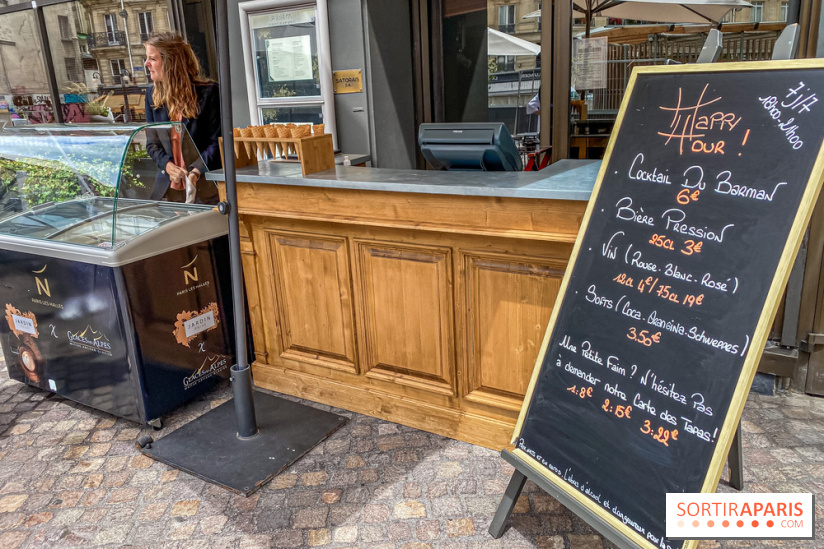 Happy
Hour !
7j/7
18h00-21h00
. Cocktail Du Barman
6€
. Bière Pression
25cl 3€
. Vin (Rouge-Blanc-Rosé)
12cl 4€/75cl 19€
. Softs (Coca-Orangina-Schweppes)
3.50€
. Une Petite Faim ? N'hésitez Pas
à demander notre Carte des Tapas!
1:8€ 2:15€ 3:22€
L'abus d'alcool est dangereux pour la
N
PARIS LES HALLES
JARDIN
X
GLACES DES ALPES
N
PARIS LES HALLES
JARDIN
X
GLACES DES ALPES
SORTIRAPARIS
.COM